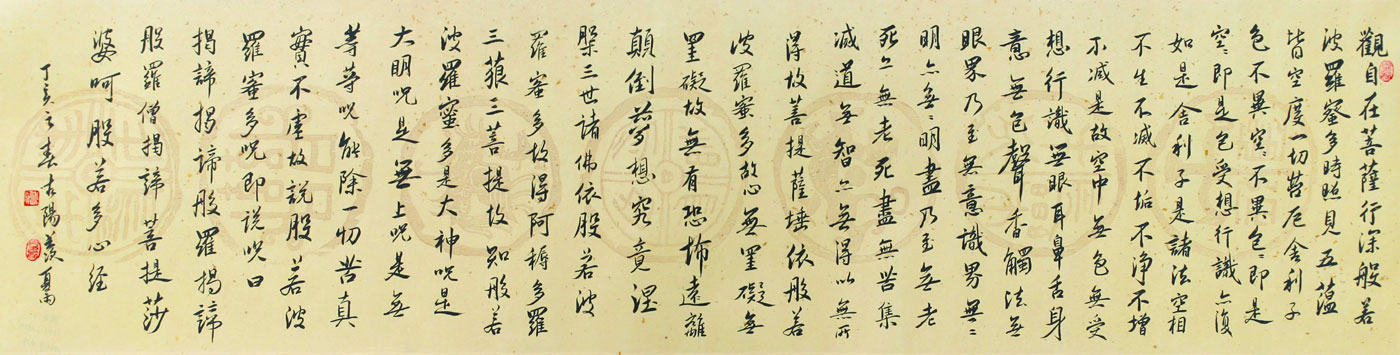 觀自在菩薩行深般若
波羅蜜多時照見五蘊
皆空度一切苦厄舍利子
色不異空〻不異色〻即是
空〻即是色受想行識亦復
如是舍利子是諸法空相
不生不滅不垢不淨不增
不減是故空中無色無受
想行識無眼耳鼻舌身
意無色聲香觸法無
眼界乃至無意識界無〻
明亦無〻明盡乃至無老
死亦無老死盡無苦集
滅道無智亦無得以無所
得故菩提薩埵依般若
波羅蜜多故心無罣礙無
罣礙故無有恐怖遠離
顛倒夢想究竟涅
槃三世諸佛依般若波
羅蜜多故得阿耨多羅
三藐三菩提故知般若
波羅蜜多是大神咒是
大明咒是無上咒是無
等等咒能除一切苦真
實不虛故說般若波
羅蜜多咒即說咒曰
揭諦揭諦般羅揭諦
般羅僧揭諦菩提莎
婆呵 般若多心经
丁亥之春古陽